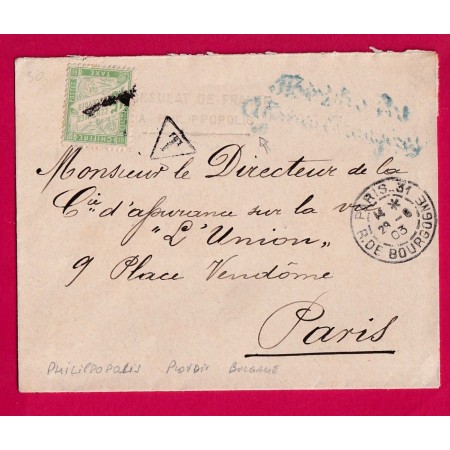 TAXE
CONSULAT DE FR
A PHILIPPOPOLI
T
Monsieur le Directeur de la
Cie d'assurance sur la vie
"L'Union"
9 Place Vendôme
Paris
PARIS 31
29 1
03
R. DE BOURGOGNE
PHILIPPOPOLIS PLOVDIV BULGARIE